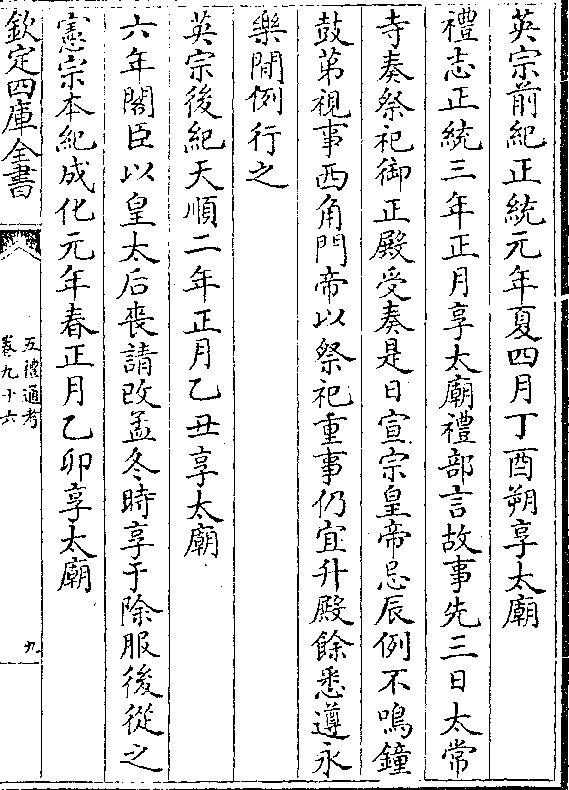 英宗前紀正統元年夏四月丁酉朔享太廟
禮志正統三年正月享太廟禮部言故事先三日太常
寺奏祭祀御正殿受奏是日宣宗皇帝忌辰例不鳴鐘
鼓第視事西角門帝以祭祀重事仍宜升殿餘悉遵永
樂間例行之
英宗後紀天順二年正月乙丑享太廟
六年閣臣以皇太后喪請改孟冬時享于除服後從之
憲宗本紀成化元年春正月乙卯享太廟
欽定四庫全書
五禮通考
卷九十六
九